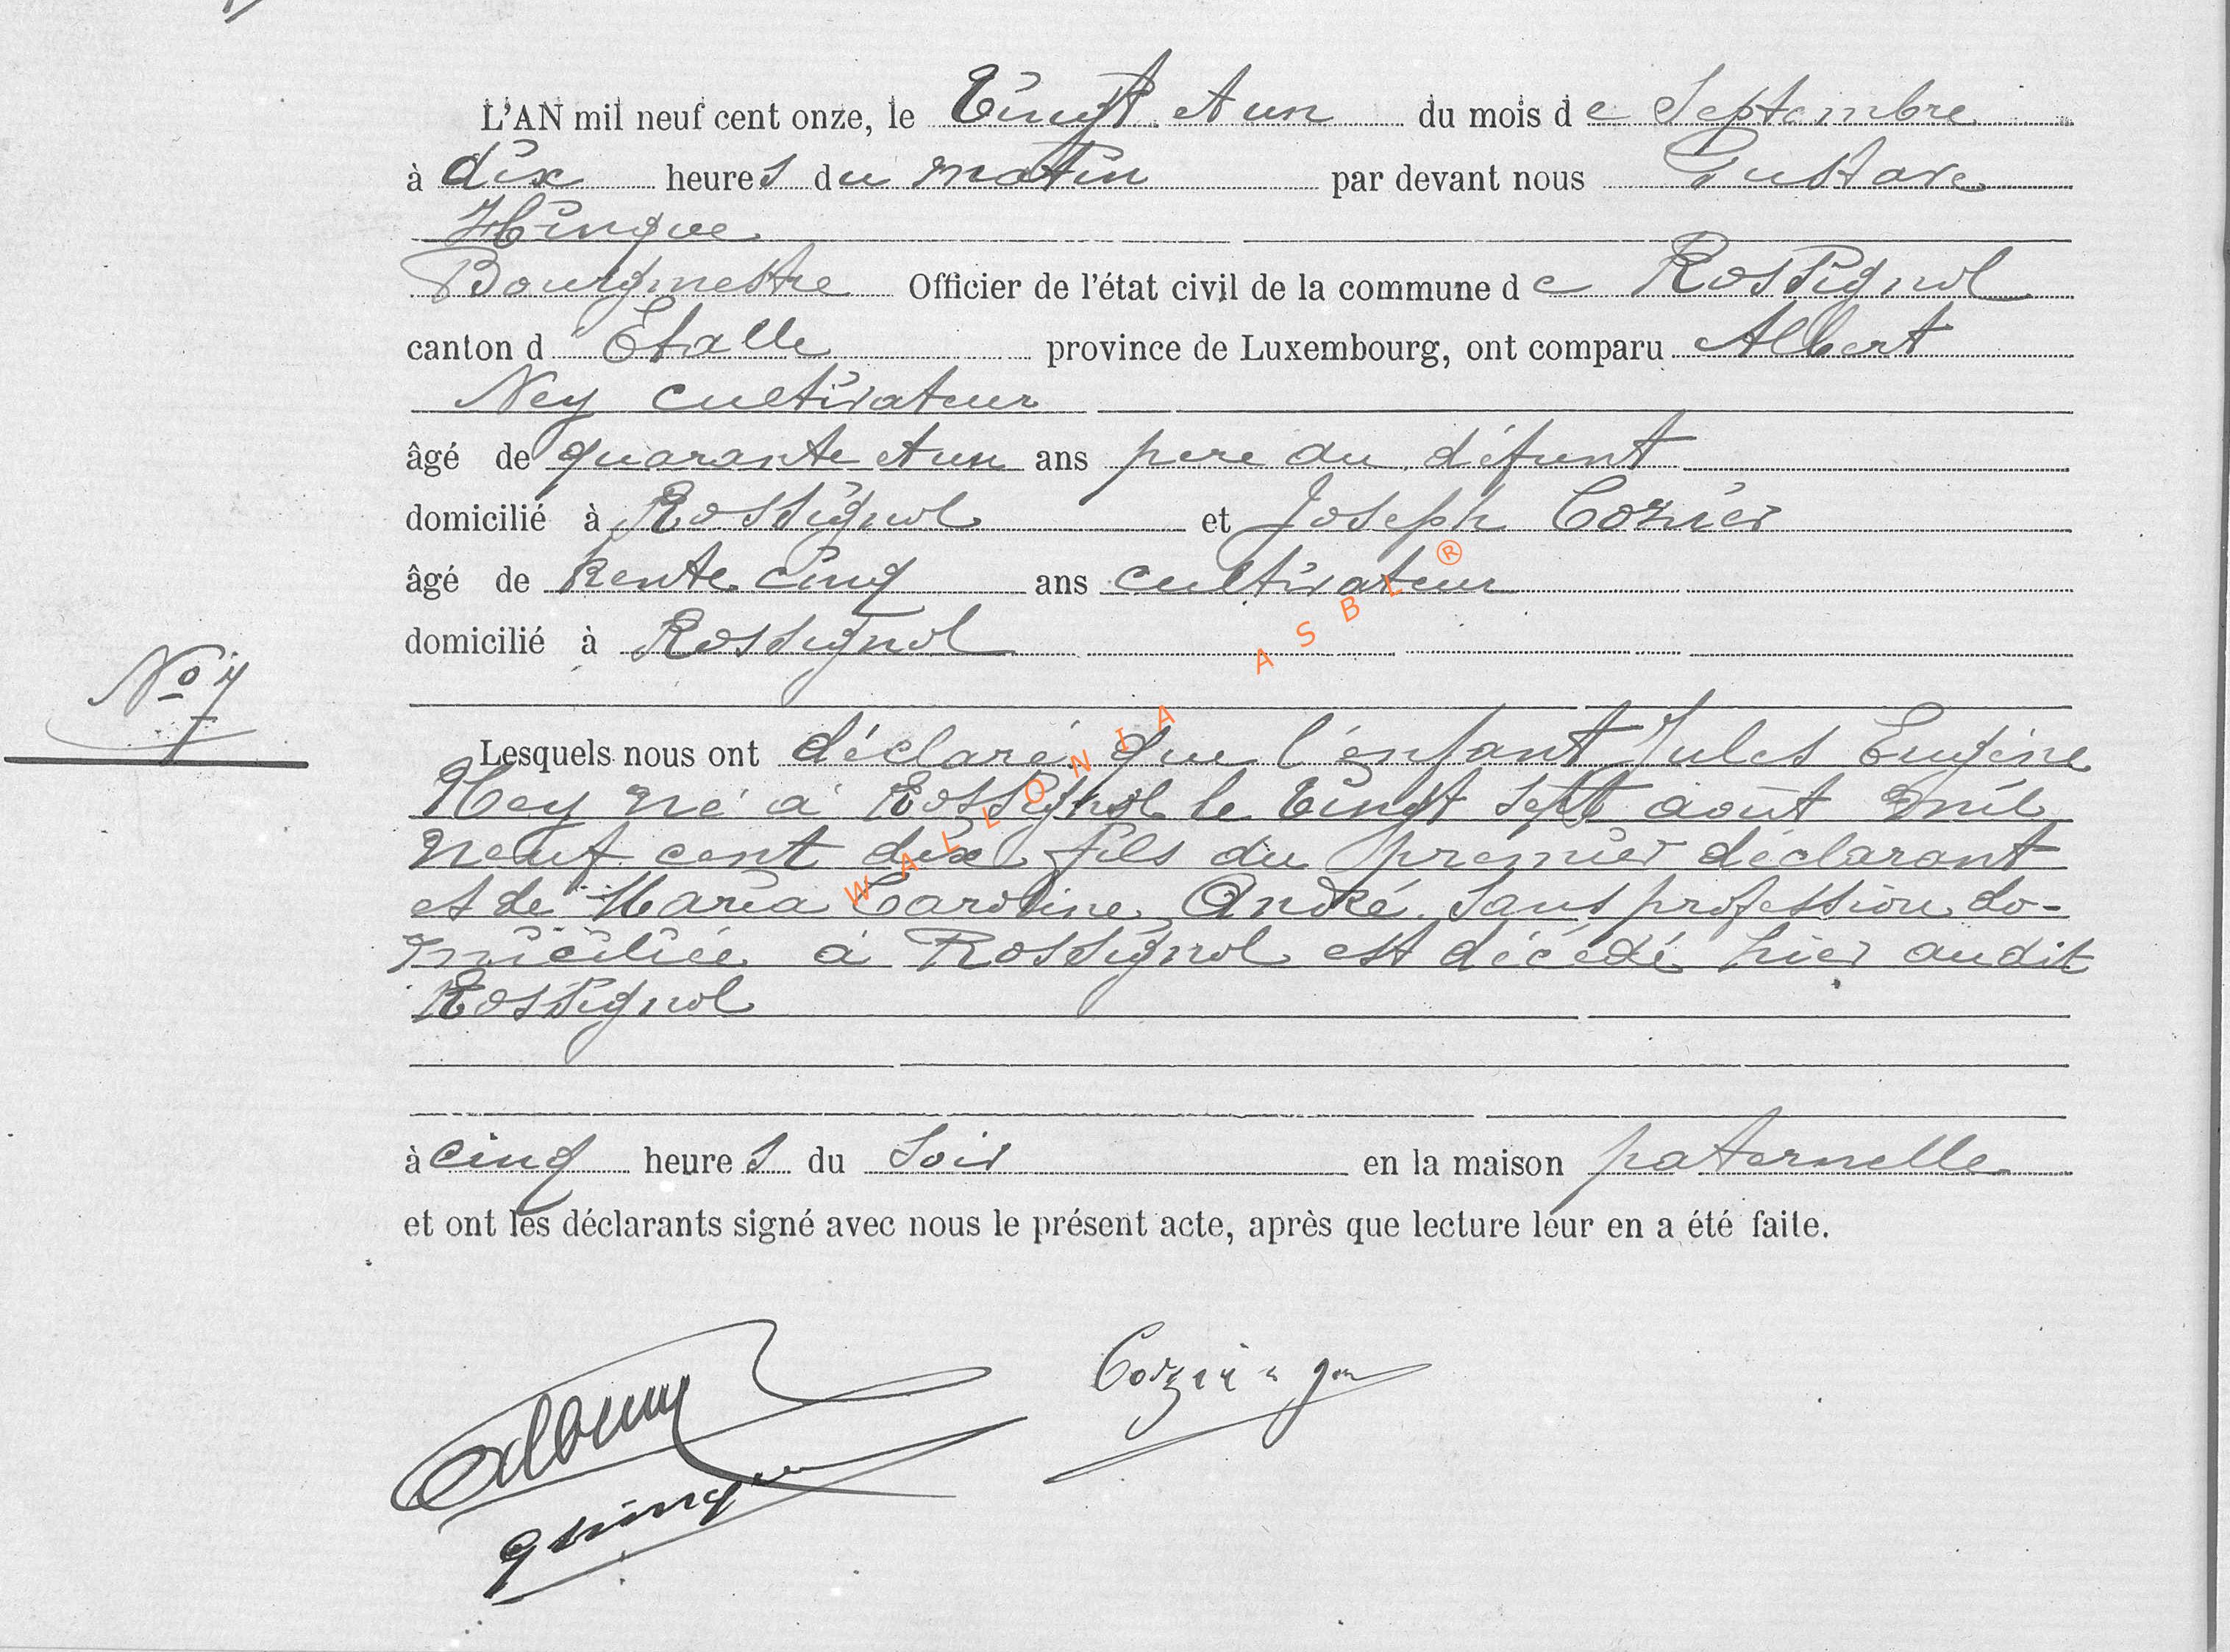 L'AN mil neuf cent onze, le Vingt et un du mois de Septembre
à dix heures du matin par devant nous Gustave
Hinque
Bourgmestre Officier de l'état civil de la commune de Rossignol
canton d'Etalle province de Luxembourg, ont comparu Albert
Ney cultivateur
âgé de quarante et un ans père du défunt
domicilié à Rossignol et Joseph Cozier
âgé de trente cinq ans cultivateur
domicilié à Rossignol
No 7
Lesquels nous ont déclaré que l'enfant Jules Eugène
Ney né à Rossignol le Vingt sept août mil
neuf cent dix fils du premier déclarant
et de Maria Caroline André sans profession do-
miciliée à Rossignol est décédé hier audit
Rossignol
à cinq heures du soir en la maison paternelle
et ont les déclarants signé avec nous le présent acte, après que lecture leur en a été faite.
WALLONIA ASBL ®